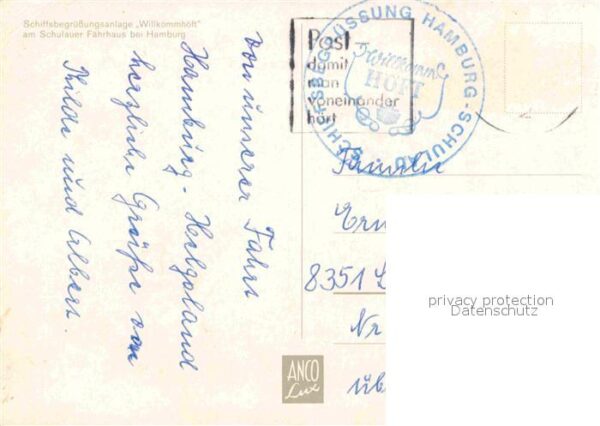 Schiffsbegrüßungsanlage „Willkommhöft"
am Schulauer Fährhaus bei Hamburg
Von unserer Fahrt
Hamburg - Helgoland
herzliche Grüße von
Thilde und Albert.
Post
damit
man
voneinander
hört
SCHIFFSBEGRÜSSUNG HAMBURG-SCHULAU
Willkomm
HÖFT
Familie
8351
Nr
üb
ANCO
Lux
privacy protection
Datenschutz